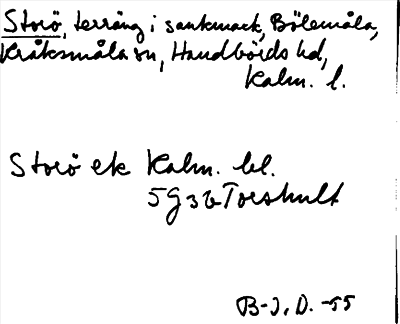 Storö, terräng i sankmark, Bölemåla,
Kråksmåla sn, Handbörds hd,
Kalm. l.
Storö ek Kalm. bl.
5G3b Torshult
B-J. D. -55